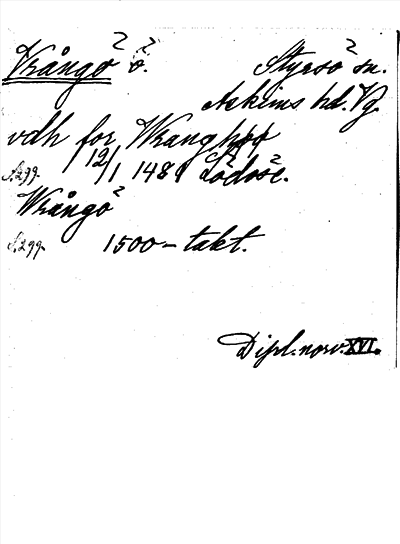 Vrångö ö. Styrsö sn.
Askims hd. Vg.
vdh for Wranghøø
S. 299. 12/1 1481 Lödöse.
Wrångö
S. 299. 1500-talet.
Dipl. norv. XVI.